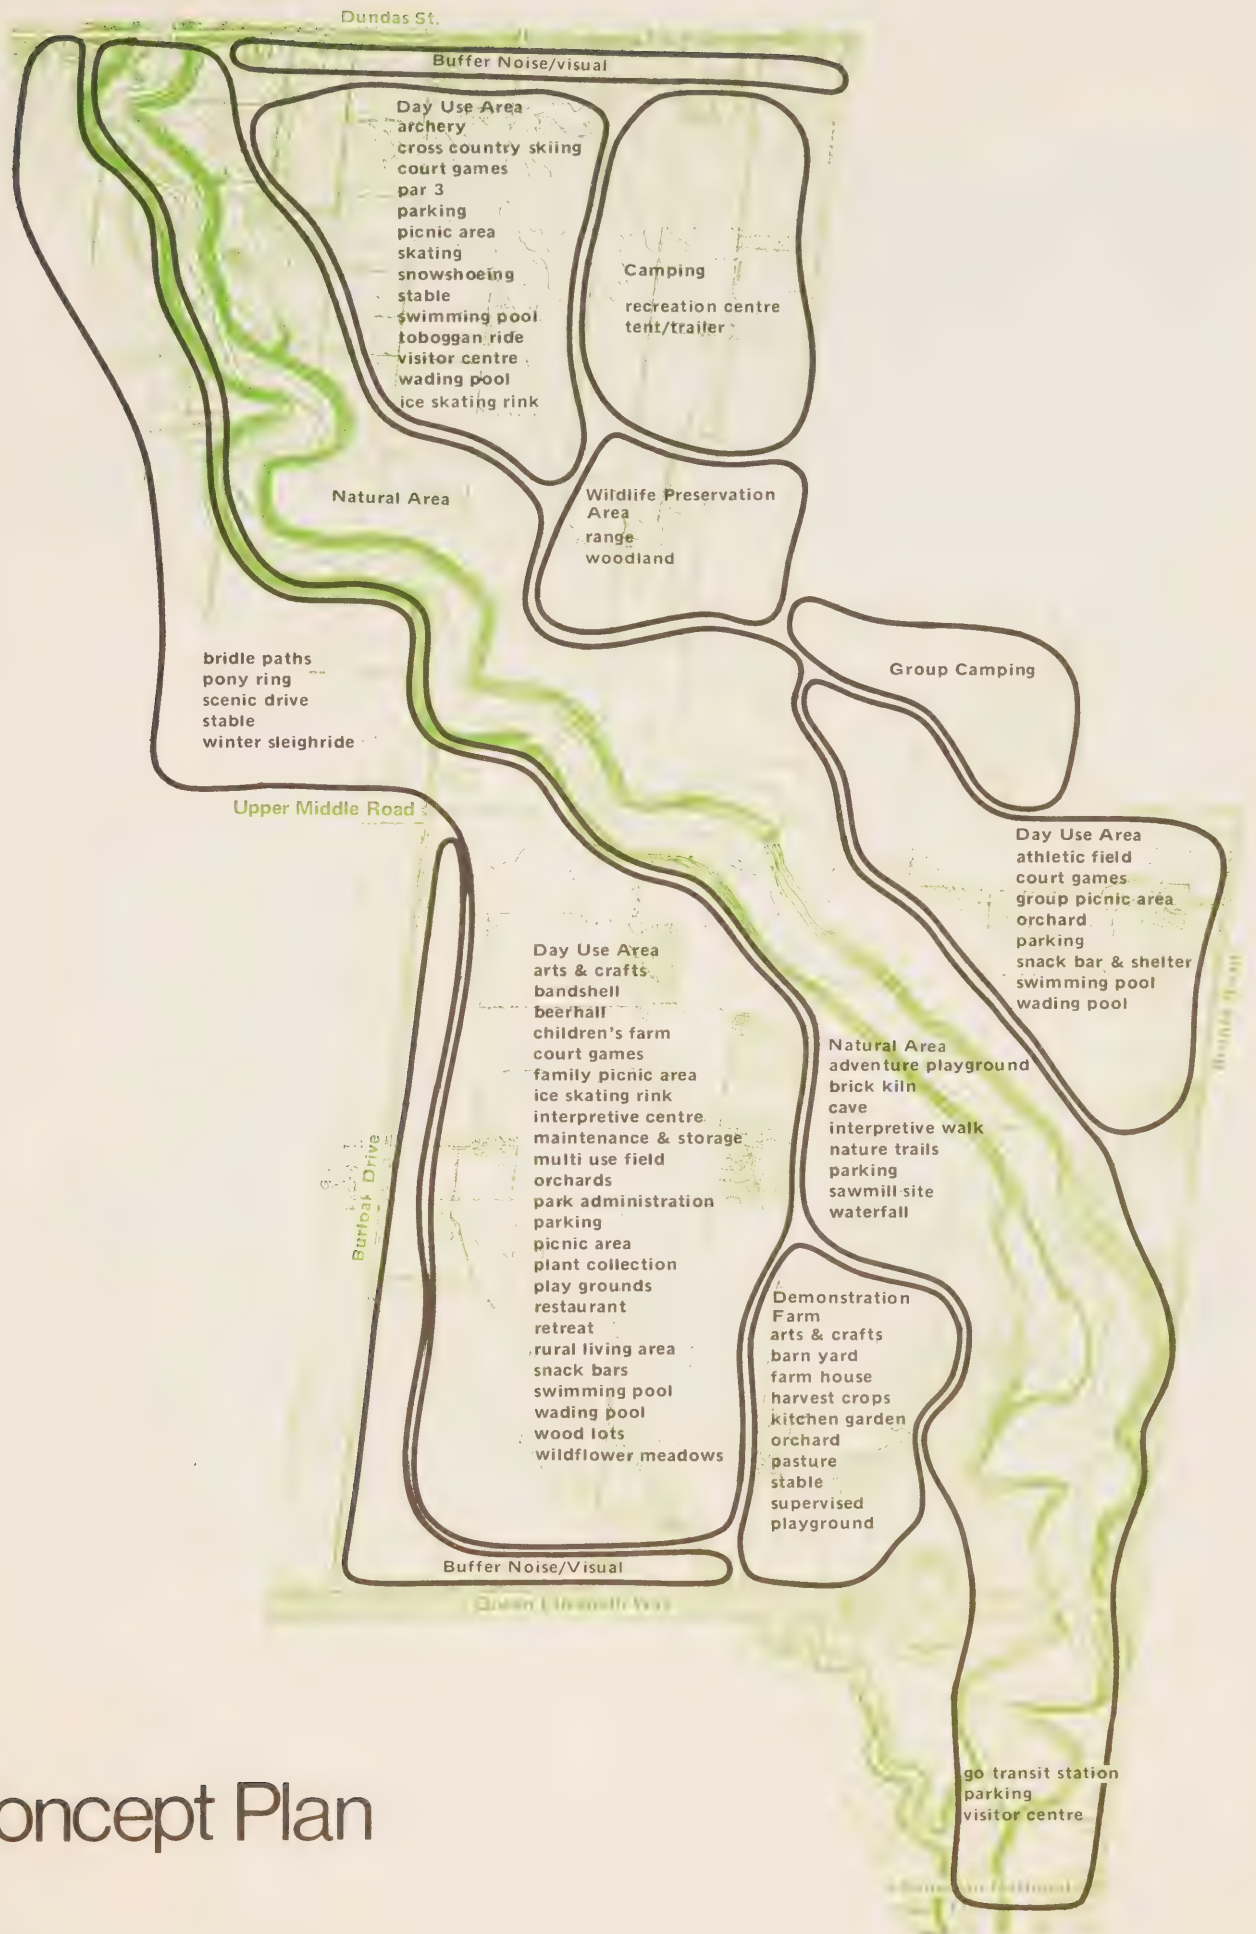 Dundas St.
Buffer Noise/visual
Day Use Area
archery
cross country skiing
court games
par 3
parking
picnic area
skating
snowshoeing
stable
swimming pool
toboggan ride
visitor centre
wading pool
ice skating rink
Camping
recreation centre
tent/trailer
Natural Area
Wildlife Preservation
Area
range
woodland
bridle paths
pony ring
scenic drive
stable
winter sleighride
Group Camping
Upper Middle Road
Day Use Area
athletic field
court games
group picnic area
orchard
parking
snack bar & shelter
swimming pool
wading pool
Day Use Area
arts & crafts
bandshell
beerhall
children's farm
court games
family picnic area
ice skating rink
interpretive centre
maintenance & storage
multi use field
orchards
park administration
parking
picnic area
plant collection
play grounds
restaurant
retreat
rural living area
snack bars
swimming pool
wading pool
wood lots
wildflower meadows
Natural Area
adventure playground
brick kiln
cave
interpretive walk
nature trails
parking
sawmill site
waterfall
Burloak Drive
Demonstration
Farm
arts & crafts
barn yard
farm house
harvest crops
kitchen garden
orchard
pasture
stable
supervised
playground
Buffer Noise/Visual
Queen Elizabeth Way
go transit station
parking
visitor centre
oncept Plan